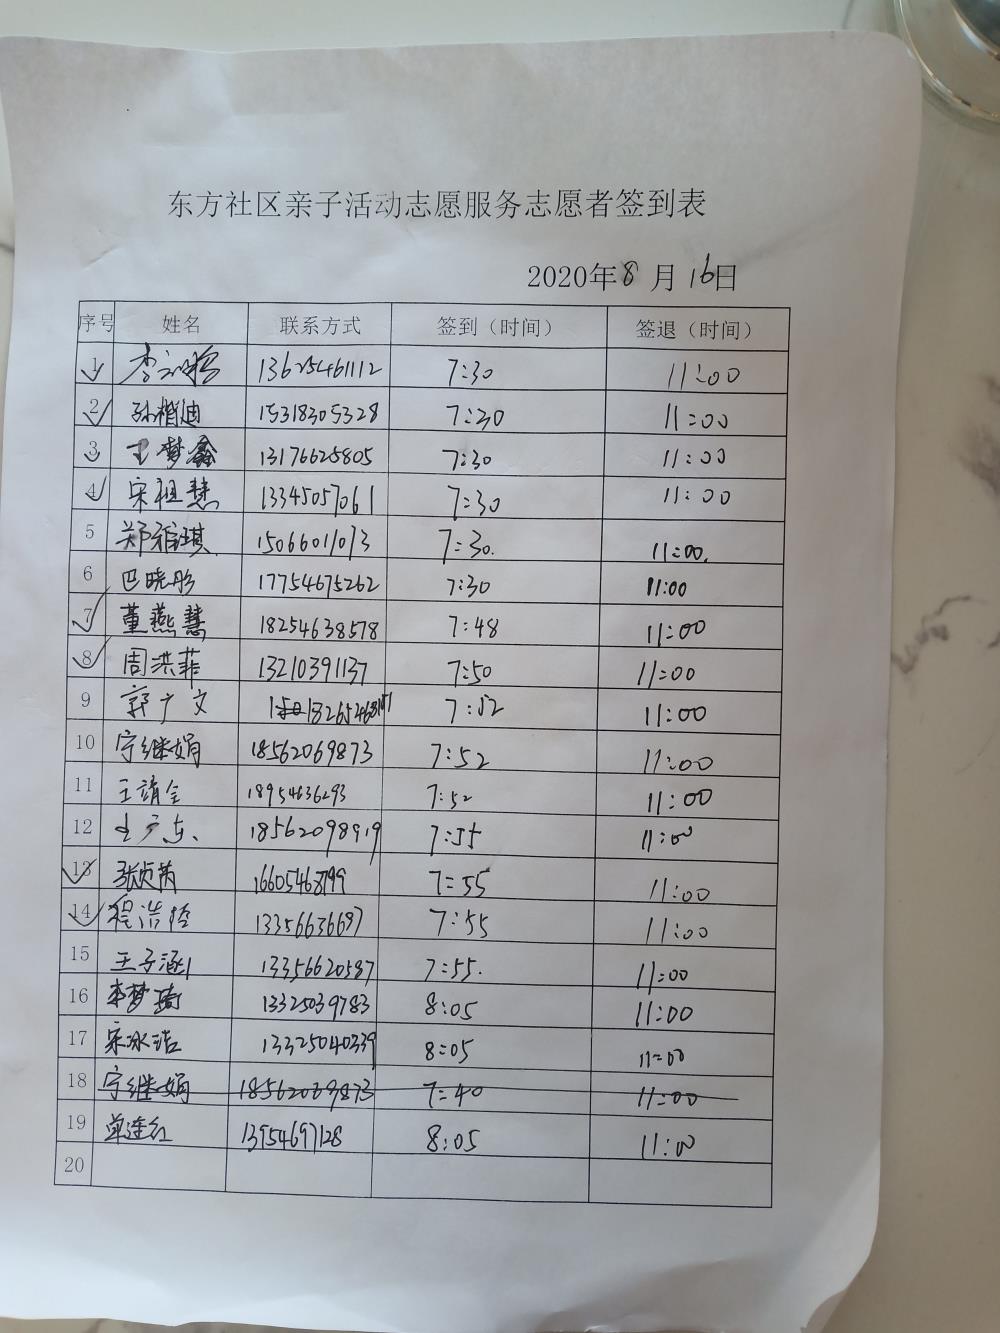 东方社区亲子活动志愿服务志愿者签到表
2020年8月16日
序号 姓名 联系方式 签到（时间） 签退（时间）
1 13625461112 7:30 11:00
2 15318305328 7:30 11:00
3 王梦鑫 13176625805 7:30 11:00
4 宋祖慧 13345057061 7:30 11:00
5 郑雅琪 15066011013 7:30. 11:00.
6 巴晓彤 17754675262 7:30 11:00
7 董燕慧 18254638578 7:48 11:00
8 周洪菲 13210391137 7:50 11:00
9 郭广文 7:52 11:00
10 宁继娟 18562069873 7:52 11:00
11 王靖全 18954636293 7:52 11:00
12 18562098919 7:55 11:00
13 张贞芮 16605468799 7:55 11:00
14 程浩 13356636697 7:55 11:00
15 王子涵 13356620587 7:55. 11:00
16 李梦琦 13325039783 8:05 11:00
17 宋冰洁 13325040339 8:05 11:00
18 宁继娟 18562069873 7:40 11:00
19 单连红 13954697128 8:05 11:00
20